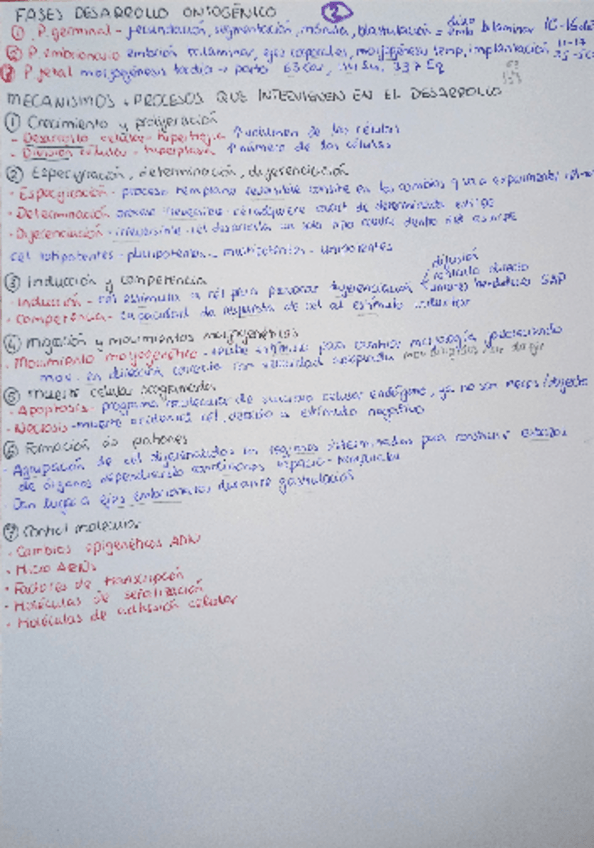 FASES DESARROLLO ONTOGÉNICO 2
① P. germinal - fecundación, segmentación, mórula, blastulación = disco emb blaminar
② P. embrionario embrión trilaminar, ejes corporales, morfogénesis temp, implantación 11-17
③ P. fetal morfogénesis tardía → parto 63 Car, 114 Su, 337 Eq
MECANISMOS Y PROCESOS QUE INTERVIENEN EN EL DESARROLLO
① Crecimiento y proliferación
- Desarrollo celular - hipertrofia ↑ volumen de las células
- División celular - hiperplasia ↑ número de las células
② Especificación, determinación, diferenciación
• Especificación - proceso temprano reversible consiste en los cambios q va a experimentar
• Determinación proceso irreversible
• Diferenciación - irreversible cel desarrolla un solo tipo
cel totipotentes - pluripotentes - multipotentes - unipotentes
③ Inducción y competencia
- Inducción - cel estimula a cel para provocar diferenciación difusión
• Competencia - capacidad de respuesta de cel al estímulo inductor
④ Migración y movimientos morfogenéticos
• Movimiento morfogenético - recibe estímulo para cambiar morfología
mov. en dirección correcta con velocidad
⑤ Muerte celular programada
• Apoptosis - programa molecular de suicidio celular endógeno, ya no son
• Necrosis - muerte accidental cel, debido a estímulo negativo
⑥ Formación de patrones
- Agrupación de cel diferenciadas en regiones determinadas para construir
de órganos dependiendo condiciones espacio - temporales
- Dan lugar a ejes embrionarios durante gastrulación
⑦ Control molecular
• Cambios epigenéticos ADN
• Micro ARNs
• Factores de transcripción
• Moléculas de señalización
• Moléculas de adhesión celular